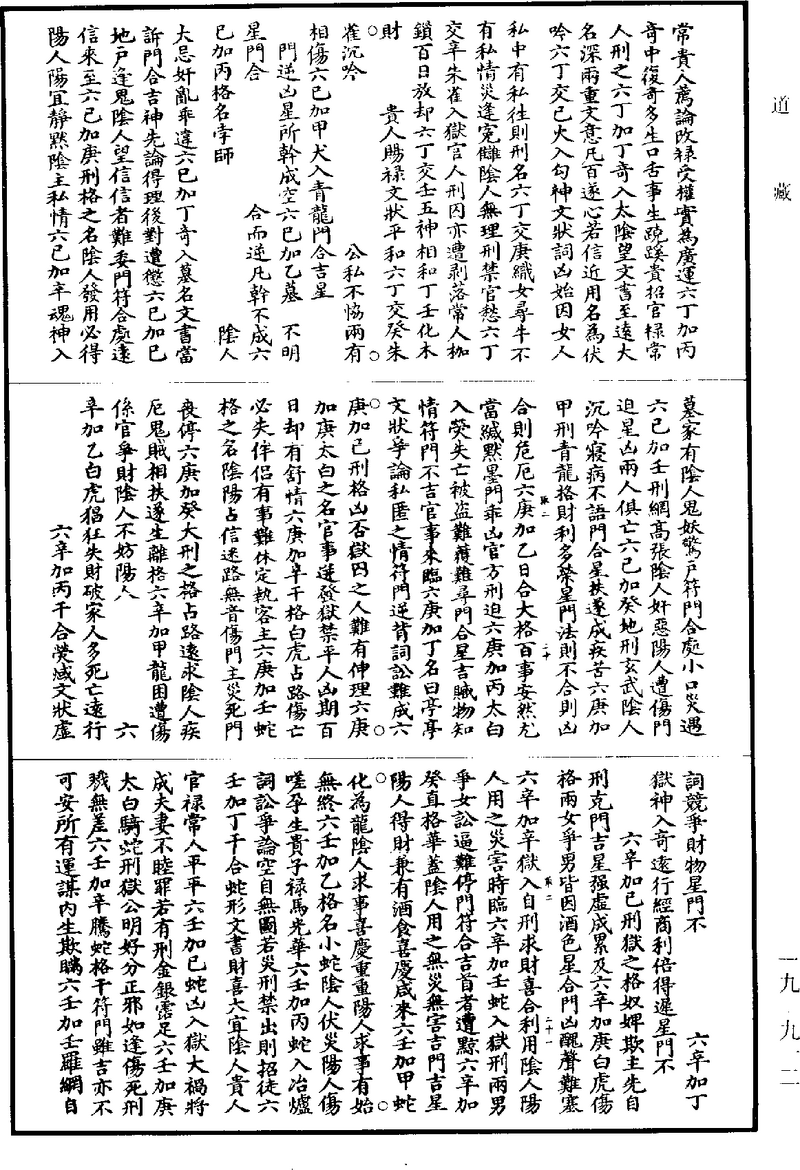 道藏
常貴人薦論改祿受權實為廣運六丁加丙
奇中復奇多生口舌事生蹺蹊貴招官祿常
人刑之六丁加丁奇入太陰望文書至遠大
名深兩重文意凡百遂心若信近用名為伏
吟六丁交己火入勾神文狀詞凶始因女人
私中有私往則刑名六丁交庚織女尋牛不
有私情災逢冤讎陰人無理刑禁官愁六丁
交辛朱雀入獄官人刑囚亦遭剥落常人枷
鎖百日放却六丁交壬五神相和丁壬化木
財 貴人賜祿文狀平和六丁交癸朱
雀沉吟 公私不恊兩有
相傷六己加甲犬入青龍門合吉星
門逆凶星所幹成空六己加乙墓 不明
星門合 合而逆凡幹不成六
己加丙格名孛師 陰人
大忌奸亂乖違六己加丁奇入墓名文書當
訴門合吉神先論得理後對遭愆六己加己
地戶逢鬼陰人望信信者難委門符合處遠
信來至六己加庚刑格之名陰人發用必得
陽人陽宜靜黙陰主私情六己加辛魂神入
墓家有陰人鬼妖驚戶符門合處小口災遇
六己加壬刑網高張陰人奸惡陽人遭傷門
迫星凶兩人俱亡六己加癸地刑玄武陰人
沉吟寢病不語門合星扶遂成疾苦六庚加
甲刑青龍格財利多榮星門法則不合則凶
合則危厄六庚加乙日合大格百事安然尤
當緘黙墨門乖凶官方刑迫六庚加丙太白
入熒失亡被盜難獲難尋門合星吉賊物知
情符門不吉官事來臨六庚加丁名曰亭亭
文狀爭論私匿之情符門逆背詞訟難成六
庚加己刑格凶否獄囚之人難有伸理六庚
加庚太白之名官事逆發獄禁平人凶期百
日却有舒情六庚加辛干格白虎占路傷亡
必失伴侶有事難休定執客主六庚加壬蛇
格之名陰陽占信迷路無音傷門主災死門
喪停六庚加癸大刑之格占路遠求陰人疾
厄鬼賊相扶遂生離格六辛加甲龍困遭傷
係官爭財陰人不妨陽人 六
辛加乙白虎猖狂失財破家人多死亡遠行
六辛加丙干合熒惑文狀虛
詞競爭財物星門不 六辛加丁
獄神入奇遠行經商利倍得遲星門不
六辛加己刑獄之格奴婢欺主先自
刑克門吉星强虛成累及六辛加庚白虎傷
格兩女爭男皆因酒色星合門凶醜聲難塞
六辛加辛獄入自刑求財喜合利用陰人陽
人用之災害時臨六辛加壬蛇入獄刑兩男
爭女訟逼難停門符合吉首者遭黥六辛加
癸直格華蓋陰人用之無災無害吉門吉星
陽人得財兼有酒食喜慶咸來六壬加甲蛇
化為龍陰人求事喜慶重重陽人求事有始
無終六壬加乙格名小蛇陰人伏災陽人傷
嗟孕生貴子祿馬光華六壬加丙蛇入冶爐
詞訟爭論空自無圖若災刑禁出則招徒六
壬加丁干合蛇形文書財喜大宜陰人貴人
官禄常人平平六壬加己蛇凶入獄大禍將
成夫妻不睦罪若有刑金銀需足六壬加庚
太白騎蛇刑獄公明好分正邪如逢傷死刑
戮無差六壬加辛騰蛇格干符門雖吉亦不
可安所有運謀內生欺瞞六壬加壬羅網自